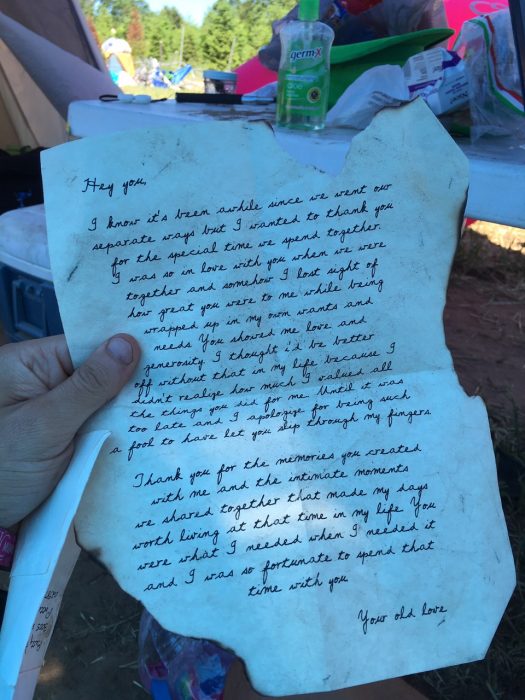 germ-x
aloe
Hey you,
I know it's been awhile since we went our
separate ways but I wanted to thank you
for the special time we spend together.
I was so in love with you when we were
together and somehow I lost sight of
how great you were to me while being
wrapped up in my own wants and
needs You showed me love and
generosity I thought i'd be better
off without that in my life because I
didn't realize how much I valued all
the things you did for me Until it was
too late and I apologize for being such
a fool to have let you slip through my fingers
Thank you for the memories you created
with me and the intimate moments
we shared together that made my days
worth living at that time in my life You
were what I needed when I needed it
and I was so fortunate to spend that
time with you
Your old love